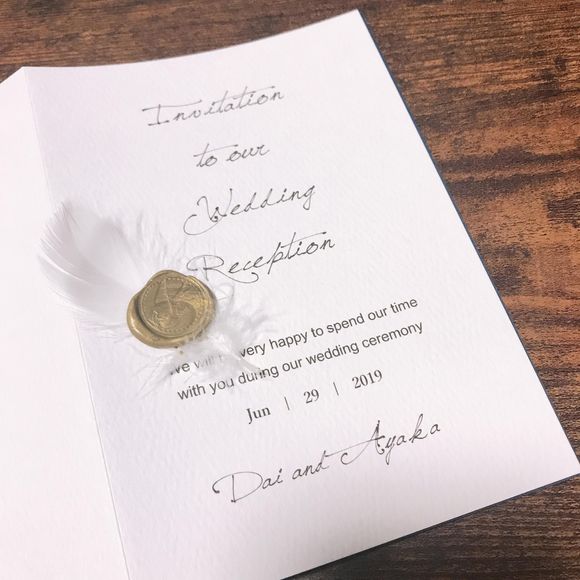 Invitation
to our
Wedding
Reception
We will very happy to spend our time
with you during our wedding ceremony
Jun | 29 | 2019
Dai and Ayaka